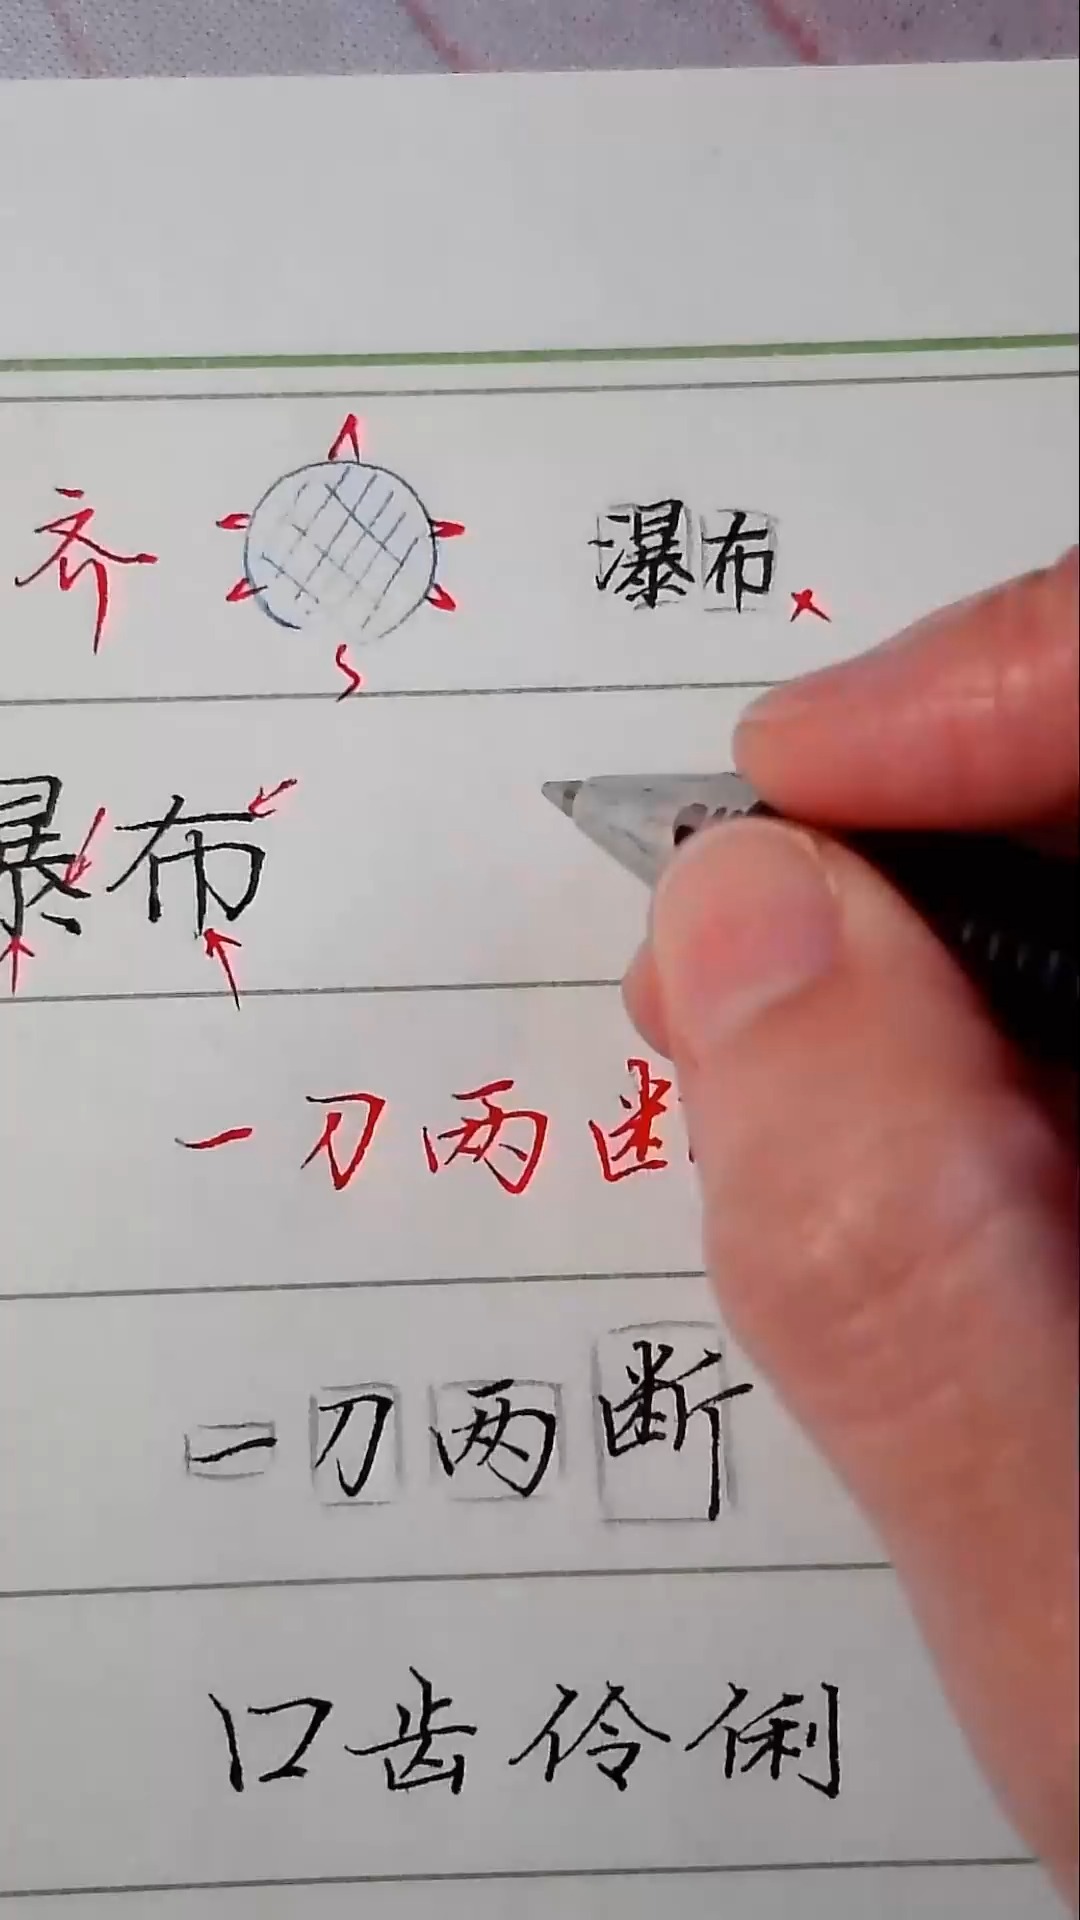 齐 瀑布
瀑布
一刀两断
一刀两断
口齿伶俐